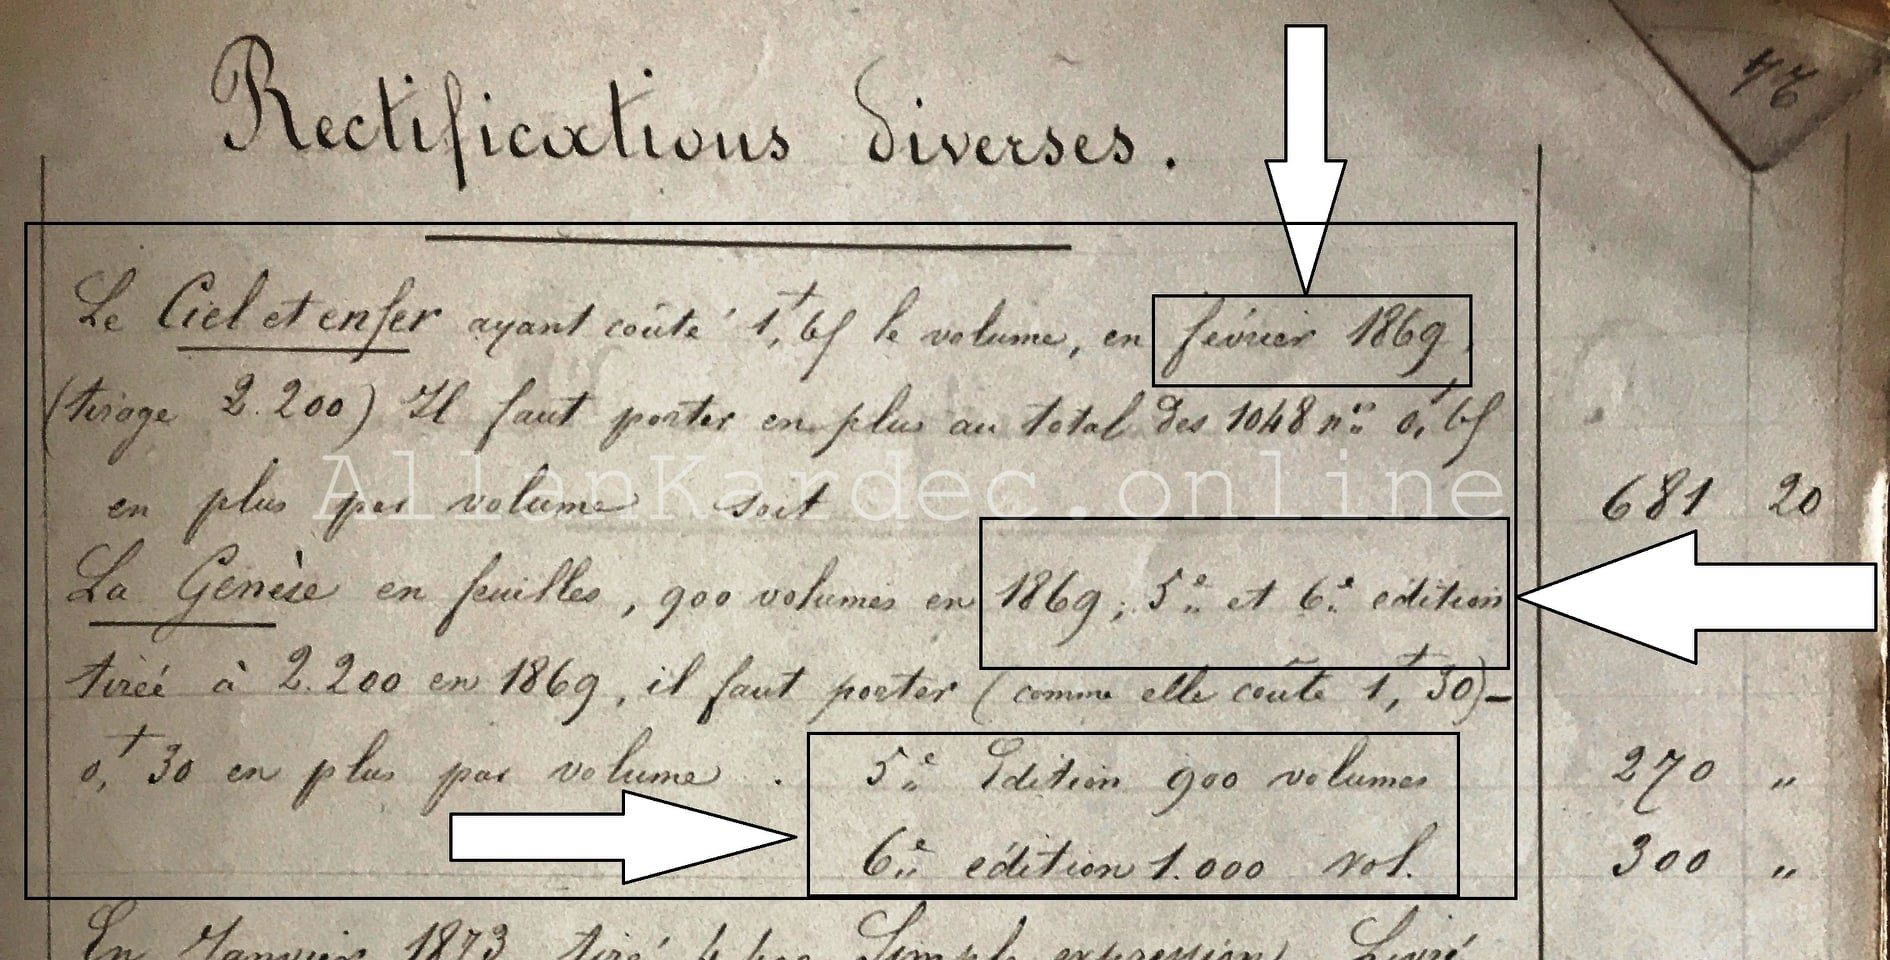 Rectifications diverses.
Le Ciel et enfer ayant coûté 1,f 65 le volume, en février 1869,
(tirage 2.200) Il faut porter en plus au total des 1048 nos 0,f 65
AllanKardec.online
en plus par volume soit 681 20
La Genèse en feuilles, 900 volumes en 1869; 5e et 6e édition
tirée à 2.200 en 1869, il faut porter (comme elle coûte 1,f 30)-
0,f 30 en plus par volume. 5e Edition 900 volumes 270 "
6e édition 1.000 vol. 300 "
En Janvier 1873 tiré Simple expression, Livré